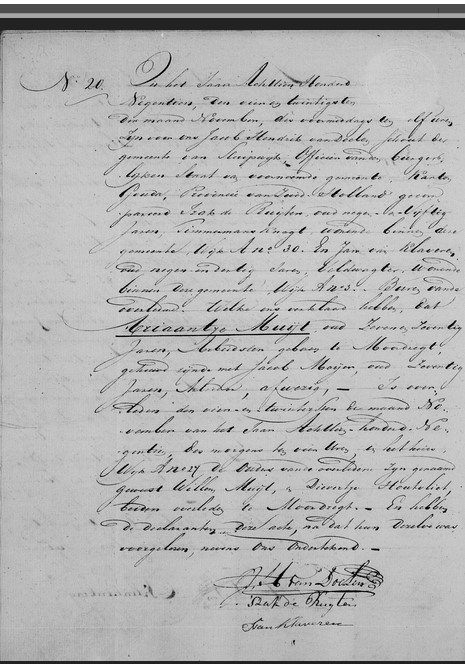 N° 20. In het Jaar Achttien Honderd
Negentien, den vierentwintigsten
der maand November, des voormiddags ten elf uren
Zijn voor ons Jacob Hendrik van Doelen, Schout der
gemeente van Officier van den burger-
lijken Staat van voornoemde gemeente, Kanton
Gouda, Provincie van Zuid-Holland gecom-
pareerd Izak de Ruijter, oud negen-en-vijftig
Jaren, Timmermansknegt, wonende binnen deze
gemeente Wijk A n° 30. En Jan van Klaveren
oud negen en dertig Jaren, Veldwagter, Wonende
binnen deze gemeente Wijk A n° 3. Buren van de
overledene. Welke ons verklaard hebben, dat
Ariaantje Muijt, oud Zeven en Zeventig
Jaren, Arbeidster, geboren te Moordregt,
gehuwd zijnde met Jacob Maijen, oud Zeventig
Jaren, Arbeider, alhier aanwezig, — Is over-
leden den vier-en-twintigsten der maand No-
vember van het Jaar Achttien-honderd-Ne-
gentien, des morgens ten vier Uren, in het huis
Wijk A n° 27 de Ouders van de overledene zijn genaamd
geweest Willem Muijt, en Dievertje
beiden overleden te Moordregt. — En hebben
de declaranten deze acte, na dat hun dezelve was
voorgelezen, nevens Ons Ondertekend. —
J H van Doelen
Izak de Ruyter
Jan Klaveren